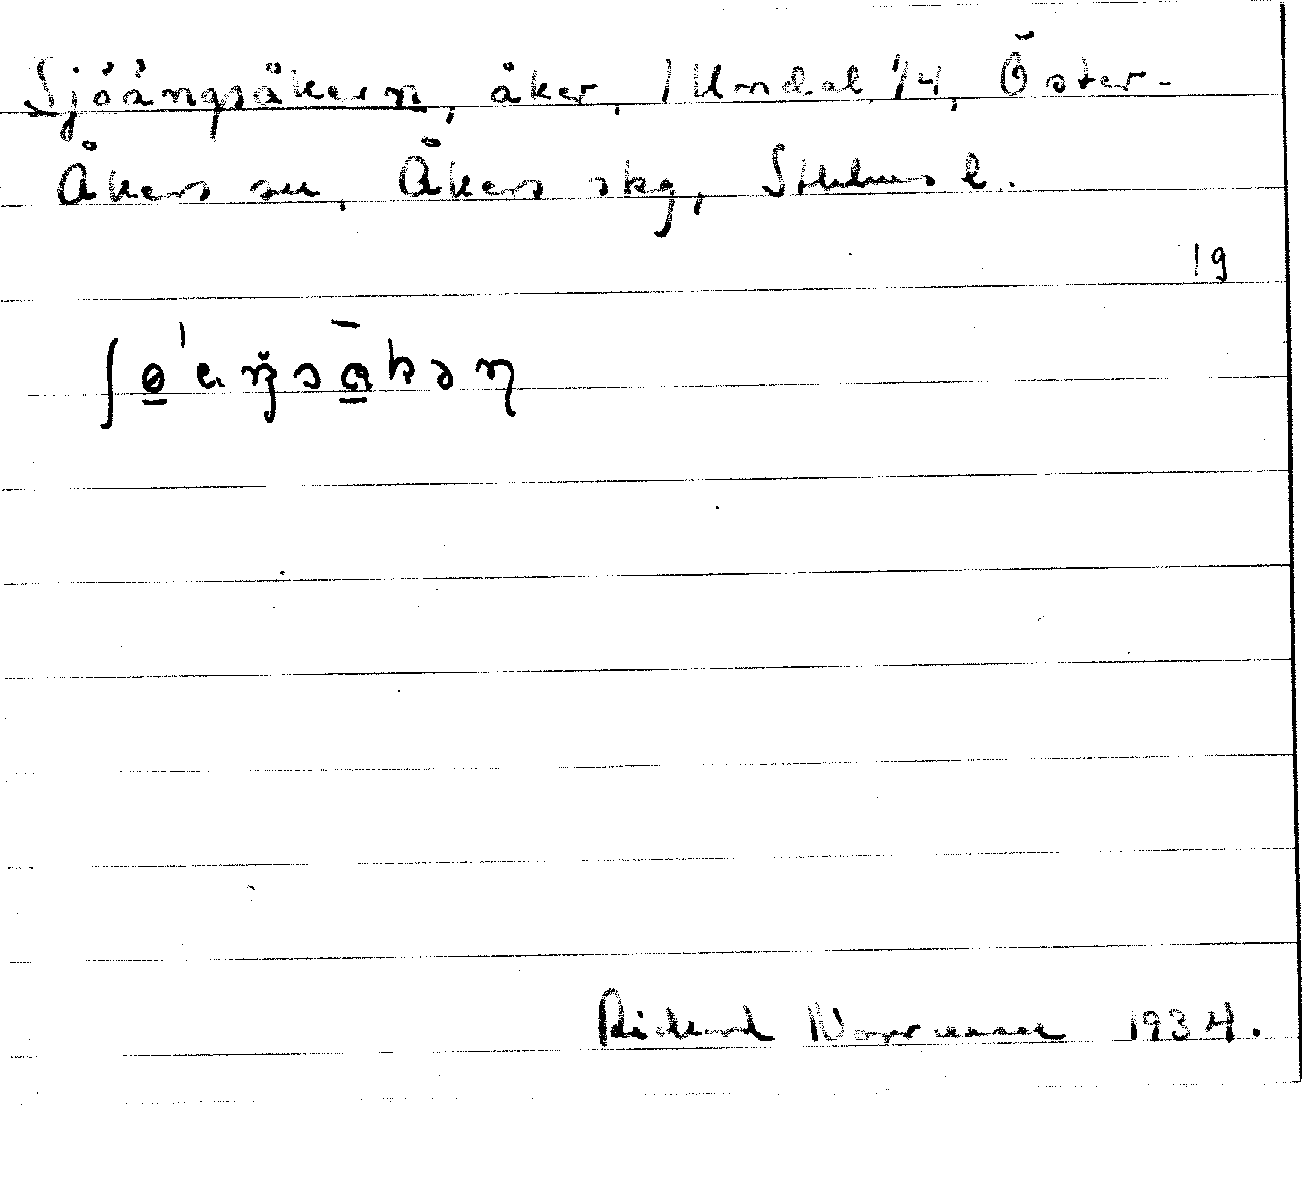 Sjöängsåkern, åker, 1 Undal 1/4, Öster-
Åkers sn, Åkers skg, Sthlms l.
19
Rickard Norrman 1934.